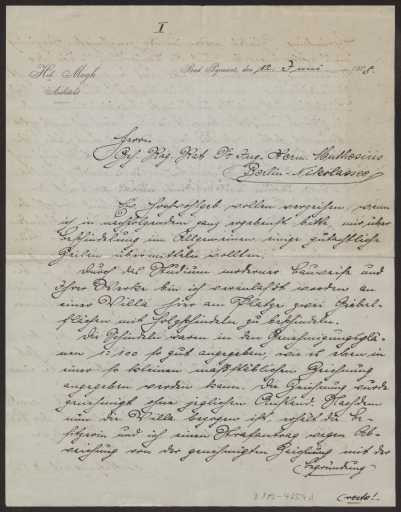 I
Hch. Mogk
Architekt
Bad Pyrmont, den 12. Juni 19
Herrn
Geh. Reg. Rat Dr. Ing. Herm. Muthesius
Berlin-Nikolassee
Ew. Hochwohlgeb. wollen verzeihen, wenn
ich in nachstehendem ganz ergebenst bitte mir über
Beschindelung im Allgemeinen einige gutachtliche
Zeilen übermitteln wollten.
Durch das Studium moderner Bauweise und
Ihrer Werke bin ich veranlaßt worden an
einer Villa hier am Platze zwei Giebel-
flächen mit Holzschindeln zu beschindeln.
Die Schindeln waren in den Genehmigungsplä-
nen 1:100 so gut angegeben, wie es eben in
einer so kleinen maßstäblichen Zeichnung
angegeben werden kann. Die Zeichnung wurde
genehmigt ohne jeglichen Anstand. Nachdem
nun die Villa bezogen ist, erhält die Be-
sitzerin und ich einen Strafantrag wegen Ab-
weichung von der genehmigten Zeichnung mit der
Begründung